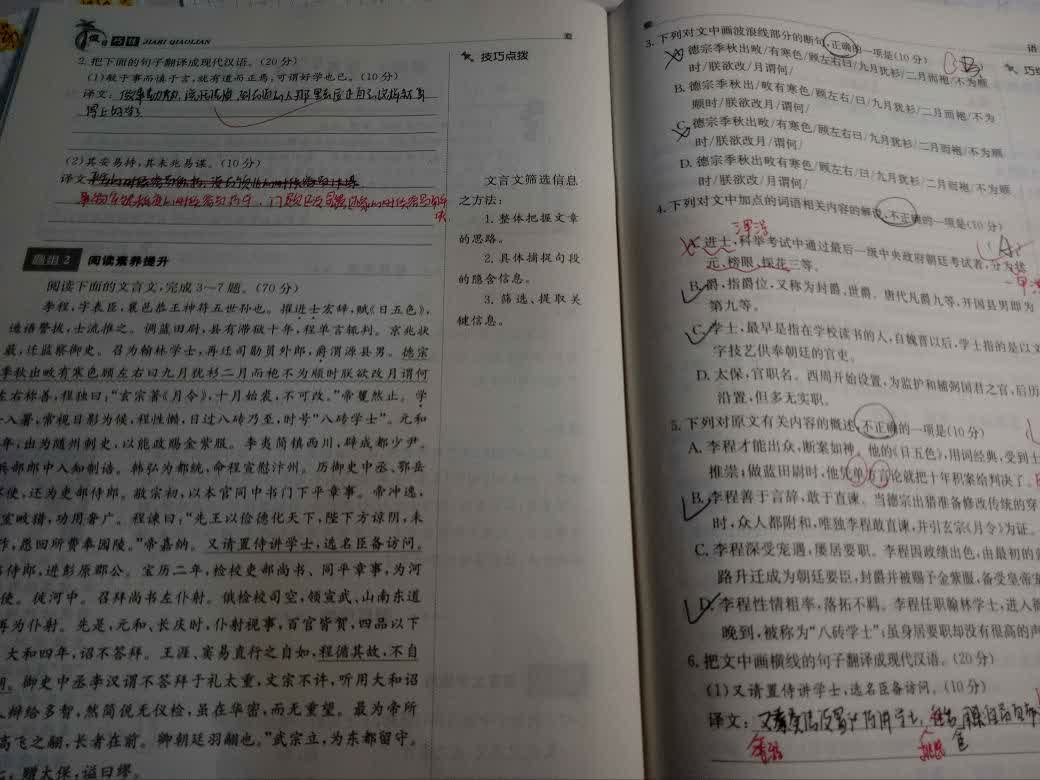 假日巧练 JIARI QIAOLIAN
2.把下面的句子翻译成现代汉语。(20分)
(1)敏于事而慎于言,就有道而正焉,可谓好学也已。(10分)
译文:
(2)其安易持,其未兆易谋。(10分)
译文
题组2 阅读素养提升
阅读下面的文言文,完成3～7题。(70分)
李程,字表臣,襄邑恭王神符五世孙也。擢进士宏辞,赋《日五色》,
造语警拔,士流推之。调蓝田尉,县有滞狱十年,程单言辄判。京兆状
最,迁监察御史。召为翰林学士,再迁司勋员外郎,爵渭源县男。德宗
季秋出畋有寒色顾左右曰九月犹衫二月而袍不为顺时朕欲改月谓何
左右称善,程独曰:“玄宗著《月令》,十月始裘,不可改。”帝矍然止。学
入署,常视日影为候,程性懒,日过八砖乃至,时号“八砖学士”。元和
年,出为随州刺史,以能政赐金紫服。李夷简镇西川,辟成都少尹。
兵部郎中入知制诰。韩弘为都统,命程宣慰汴州。历御史中丞、鄂岳
使,还为吏部侍郎。敬宗初,以本官同中书门下平章事。帝冲逸,
室畋猎,功用奢广。程谏曰:“先王以俭德化天下,陛下方谅阴,未
作,愿回所费奉园陵。”帝嘉纳。又请置侍讲学士,选名臣备访问。
侍郎,进彭原郡公。宝历二年,检校吏部尚书、同平章事,为河
使。徙河中。召拜尚书左仆射。俄检校司空,领宣武、山南东道
再为仆射。先是,元和、长庆时,仆射视事,百官皆贺,四品以下
大和四年,诏不答拜。王涯、窦易直行之自如,程循其故,不自
御史中丞李汉谓不答拜于礼太重,文宗不许,听用大和诏
辩给多智,然简侻无仪检,虽在华密,而无重望。最为帝所
高飞之翮,长者在前。卿朝廷羽翮也。”武宗立,为东都留守。
赠太保,谥曰缪。
技巧点拨
文言文筛选信息
之方法:
1.整体把握文章
的思路。
2.具体捕捉句段
的隐含信息。
3.筛选、提取关
键信息。
3.下列对文中画波浪线部分的断句,正确的一项是(10分)
B
A.德宗季秋出畋/有寒色/顾左右曰/九月犹衫/二月而袍/不为顺
时/朕欲改/月谓何/
B.德宗季秋出畋/有寒色/顾左右/曰/九月犹衫/二月而袍/不为
顺时/朕欲改月/谓何/
C.德宗季秋出畋/有寒色/顾左右曰/九月犹衫/二月而袍/不为顺
时/朕欲改月/谓何/
D.德宗季秋出畋/有寒色/顾左右/曰/九月犹衫/二月而袍/不为顺
时/朕欲改/月谓何/
4.下列对文中加点的词语相关内容的解说,不正确的一项是(10分)
A
A.进士,科举考试中通过最后一级中央政府朝廷考试者,分为状
元、榜眼、探花三等。
B.爵,指爵位,又称为封爵、世爵。唐代凡爵九等,开国县男即为
第九等。
C.学士,最早是指在学校读书的人,自魏晋以后,学士指的是以文
字技艺供奉朝廷的官吏。
D.太保,官职名。西周开始设置,为监护和辅弼国君之官,后历
沿置,但多无实职。
5.下列对原文有关内容的概述,不正确的一项是(10分)
A.李程才能出众,断案如神。他的《日五色》,用词经典,受到士
推崇;做蓝田尉时,他凭单方言论就把十年积案给判决了。
B.李程善于言辞,敢于直谏。当德宗出猎准备修改传统的穿
时,众人都附和,唯独李程敢直谏,并引玄宗《月令》为证。
C.李程深受宠遇,屡居要职。李程因政绩出色,由最初的
路升迁成为朝廷要臣,封爵并被赐予金紫服,备受皇帝宠
D.李程性情粗率,落拓不羁。李程任职翰林学士,进入
晚到,被称为“八砖学士”;虽身居要职却没有很高的声
6.把文中画横线的句子翻译成现代汉语。(20分)
(1)又请置侍讲学士,选名臣备访问。(10分)
译文: